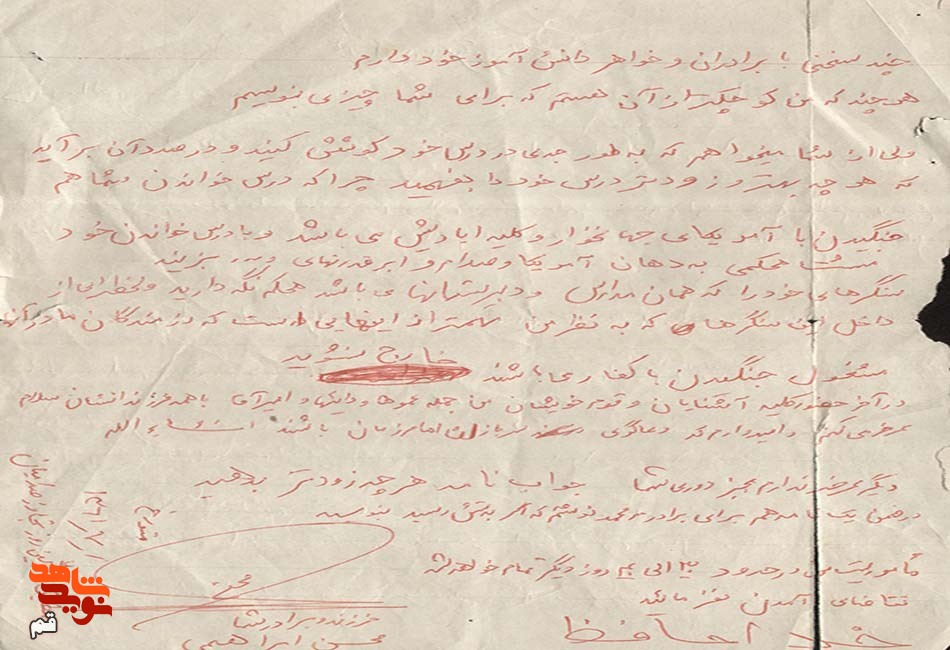 چند سخنی با برادران و خواهر دانش آموز خود دارم
هر چند که من کوچکتر از آن هستم که برای شما چیزی بنویسم
ولی از شما میخواهم که به طور جدی در درس خود کوشش کنید و در صدد آن برآید
که هر چه بهتر و زودتر درس خود را بفهمید چرا که درس خواندن شما هم
جنگیدن با آمریکای جهانخوار و کلیه ایادیش می باشد و با درس خواندن خود
مشت محکمی به دهان آمریکا و صدام و ابرقدرتهای بزنید
سنگرهای خود را که همان مدارس و دبیرستانها می باشد محکم نگه دارید و لحظه‌ای از
داخل این سنگرها که به نظر من مهمتر از اینهایی است که رزمندگان ما در آنها
مشغول جنگیدن با کفار می باشند خارج نشوید
در آخر حضور کلیه آشنایان و قوم خویشان من جمله عموها و دائیها و با همه فرزندانشان سلام
عرض می کنم و امیدوارم که دعاگوی سربازان امام زمان باشند انشاء الله
دیگر عرضی ندارم بجز دوری شما جواب نامه هر چه زودتر بدهید
در ضمن یک نامه هم برای برادرم محمد نوشتم که اگر بدستش رسید بنویسد
مأموریتمان در حدود ۳۰ الی ۴۰ روز دیگر تمام خواهد شد
تقاضای آمدن نفرمائید
خدا حافظ
فرزند و برادر شما
محسن ابراهیمی
نوید شاهد
قم